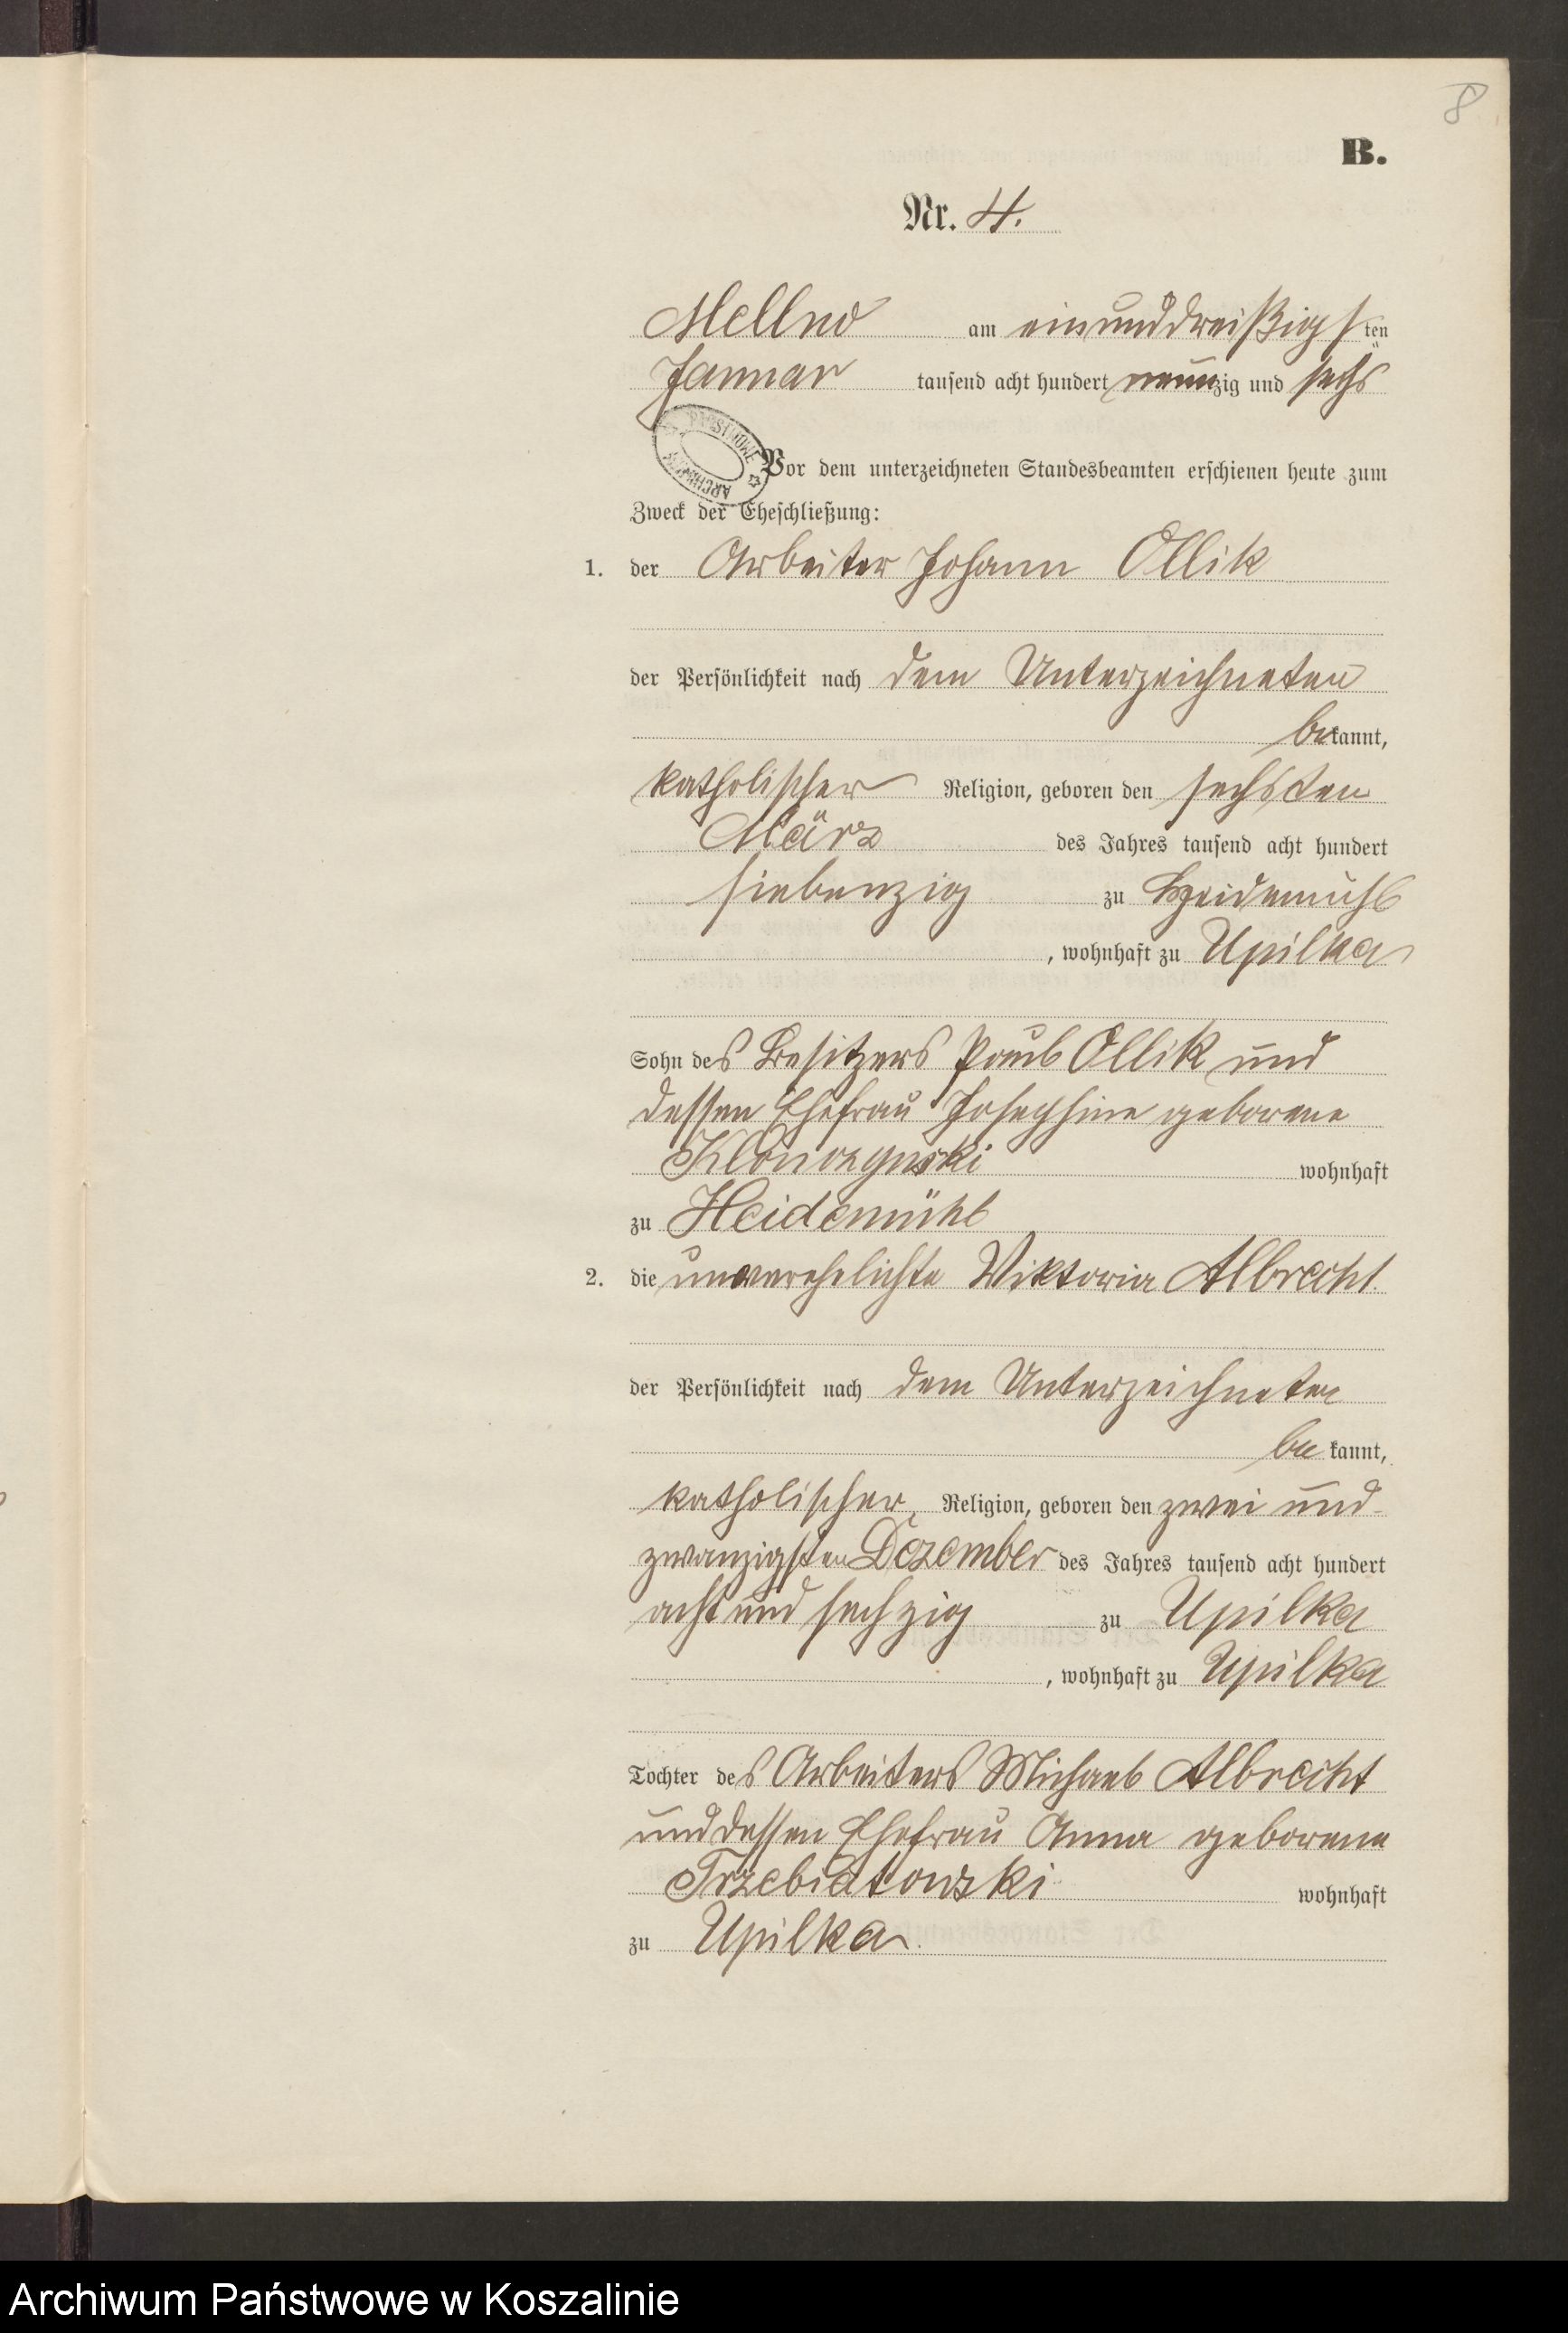 8
B.
Nr. 4.
Mellno am einunddreißigsten
Januar tausend acht hundert neunzig und sechs
Vor dem unterzeichneten Standesbeamten erschienen heute zum
Zweck der Eheschließung:
1. der Arbeiter Johann Ollik
der Persönlichkeit nach dem Unterzeichneten
bekannt,
katholischer Religion, geboren den sechsten
März des Jahres tausend acht hundert
siebenzig zu Heidemühl
, wohnhaft zu Upilka
Sohn des Besitzers Paul Ollik und
dessen Ehefrau Josephine geborene
Klonczynski wohnhaft
zu Heidemühl
2. die unverehelichte Viktoria Albrecht.
der Persönlichkeit nach dem Unterzeichneten
bekannt,
katholischer Religion, geboren den zwei und
zwanzigsten Dezember des Jahres tausend acht hundert
acht und sechzig zu Upilka
, wohnhaft zu Upilka
Tochter des Arbeiters Michael Albrecht
und dessen Ehefrau Anna geborene
Trzebiatowski wohnhaft
zu Upilka.
Archiwum Państwowe w Koszalinie